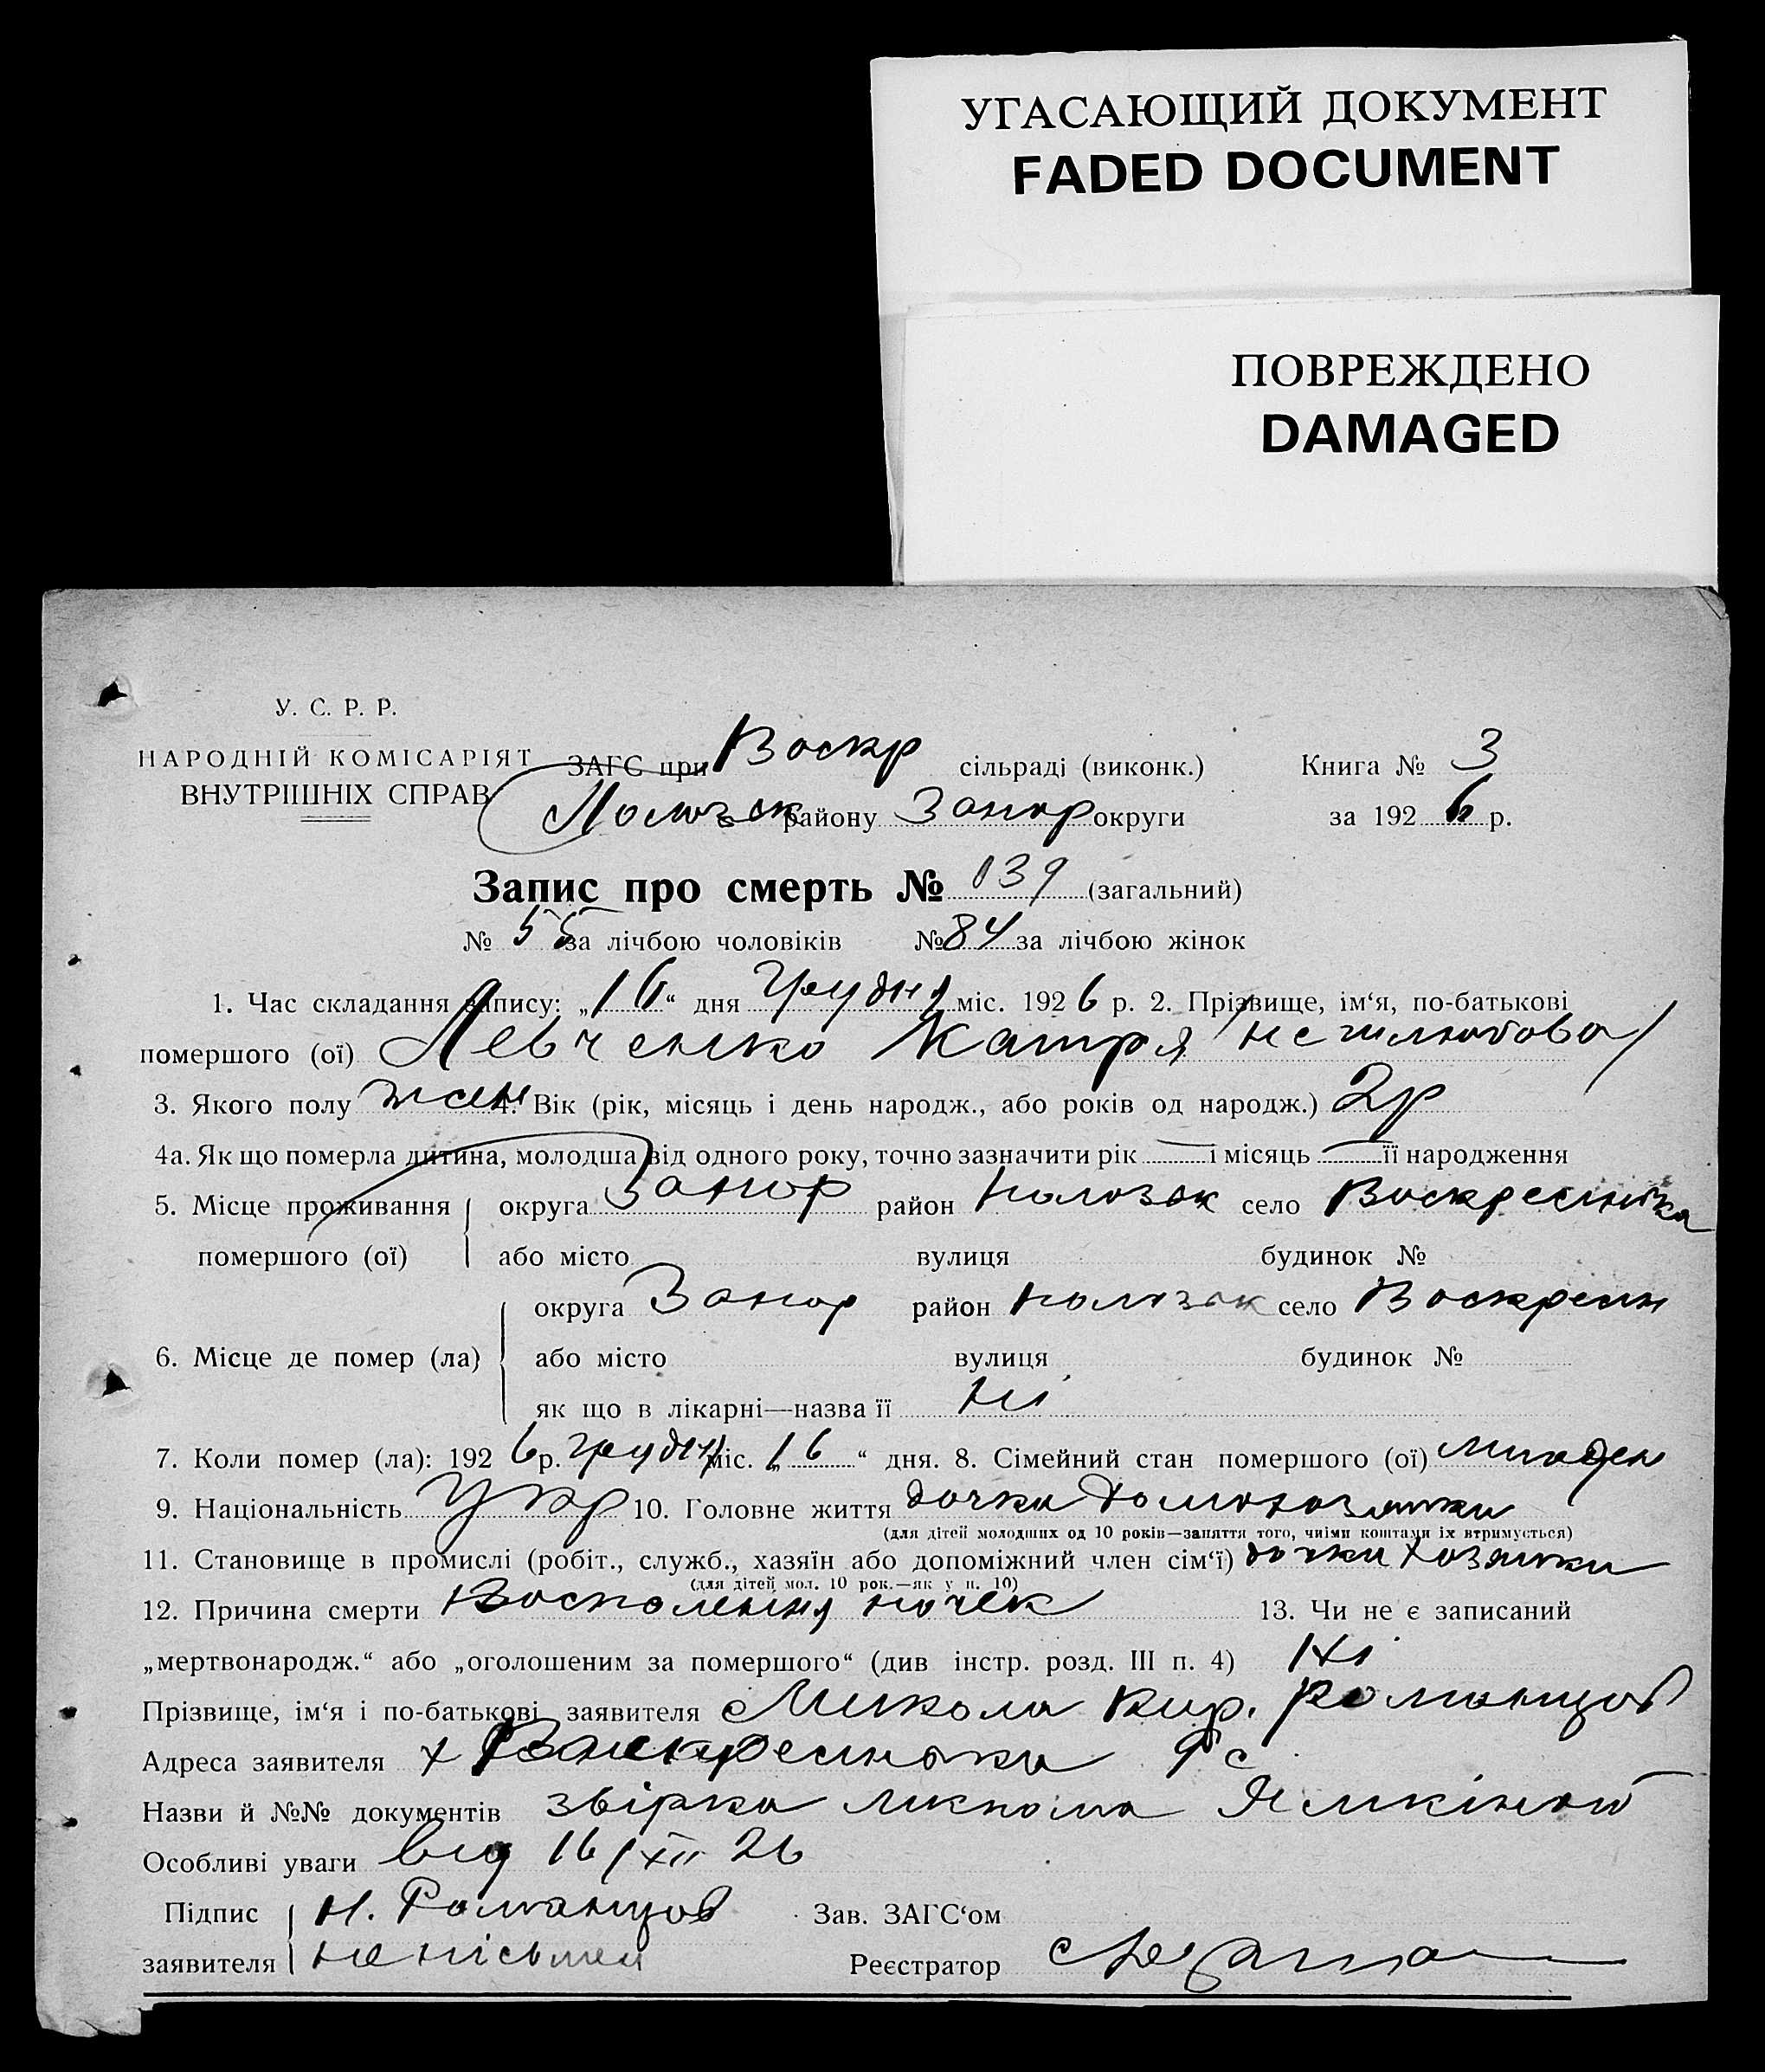 УГАСАЮЩИЙ ДОКУМЕНТ
FADED DOCUMENT
ПОВРЕЖДЕНО
DAMAGED
У. С. Р. Р.
НАРОДНІЙ КОМІСАРІЯТ
ВНУТРІШНІХ СПРАВ
ЗАГС при Воскр сільраді (виконк.) Книга № 3
району Запор округи за 1926 р.
Запис про смерть № 139 (загальний)
№ 55 за лічбою чоловіків № 84 за лічбою жінок
1. Час складання запису: „16“ дня грудня міс. 1926 р. 2. Прізвище, ім‘я, по-батькові
помершого (ої) Левченко Катря
3. Якого полу жен 4. Вік (рік, місяць і день народж., або років од народж.) 2р
4а. Як що померла дитина, молодша від одного року, точно зазначити рік — і місяць — її народження
5. Місце проживання округа Запор район Пологвск село Воскресенька
помершого (ої) або місто вулиця будинок №
округа Запор район село Воскресен
6. Місце де помер (ла) або місто вулиця будинок №
як що в лікарні—назва її Ні
7. Коли помер (ла): 1926 р. грудня міс. „16“ дня. 8. Сімейний стан помершого (ої) младен
9. Національність Укр 10. Головне життя дочка домохозяйки
(для дітей молодших од 10 років—заняття того, чиїми коштами їх втримується)
11. Становище в промислі (робіт., служб., хазяїн або допоміжний член сім‘ї) дочка хозяйки
(для дітей мол. 10 рок.—як у п. 10)
12. Причина смерти Воспаленія почек 13. Чи не є записаний
„мертвонародж.“ або „оголошеним за помершого“ (див інстр. розд. III п. 4) Ні
Прізвище, ім‘я і по-батькові заявителя Микола Кир. Романцов
Адреса заявителя х Воскресенька
Назви й №№ документів збірка лікпома
Особливі уваги від 16/XII 26
Підпис Н. Романцов Зав. ЗАГС‘ом
заявителя непісьмен Реєстратор